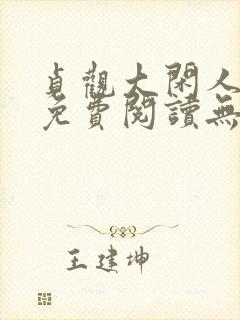 貞觀大閑人
免費閱讀無
王建坤